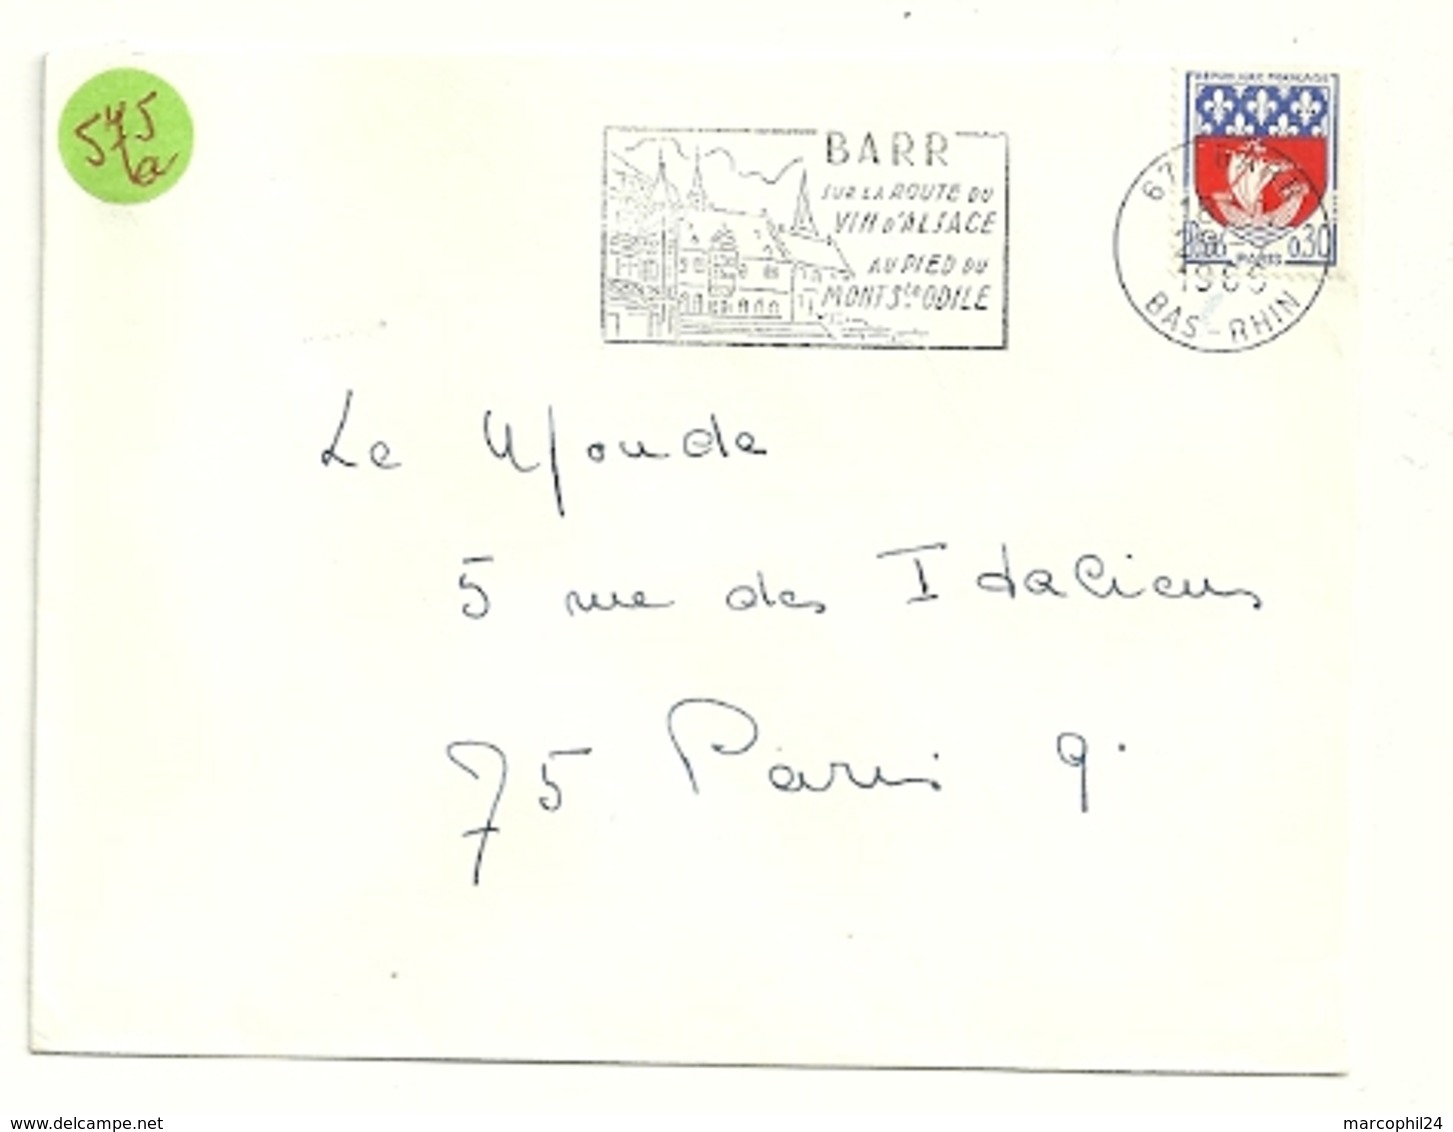 575
a
BARR
SUR LA ROUTE DU
VIN D'ALSACE
AU PIED DU
MONT Ste ODILE
REPUBLIQUE FRANÇAISE
0.30
PARIS
67 BARR
18
1966
BAS-RHIN
Le Monde
5 rue des Italiens
75 Paris 9.
www.delcampe.net
marcophil24